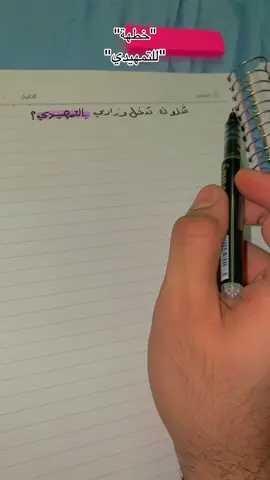 "خطهة"
"للتمهيدي"
شلونه تدخل وزاري بالتمهيدي؟